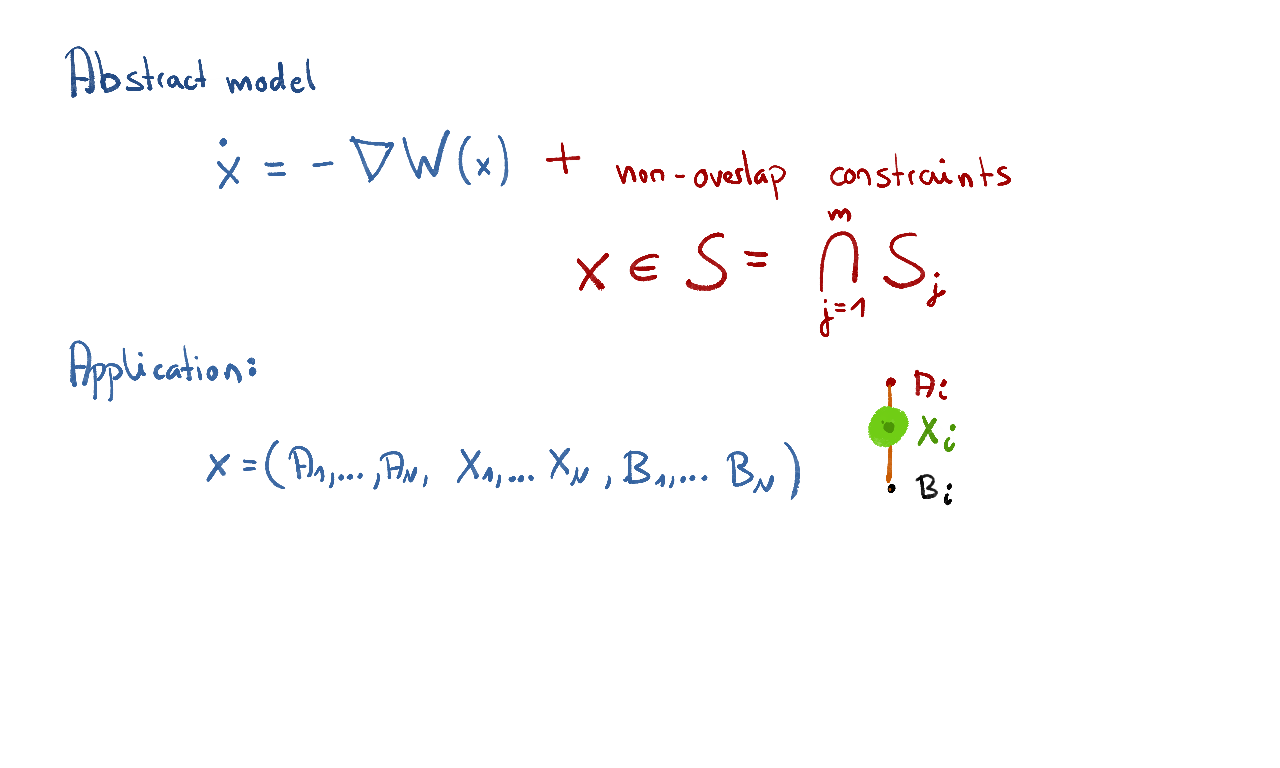 Abstract model
ẋ = - ∇W(x) + non-overlap constraints
x ∈ S = ⋂_{j=1}^{m} S_j
Application:
x = (A_1,...,A_N, X_1,... X_N, B_1,... B_N)
A_i
X_i
B_i